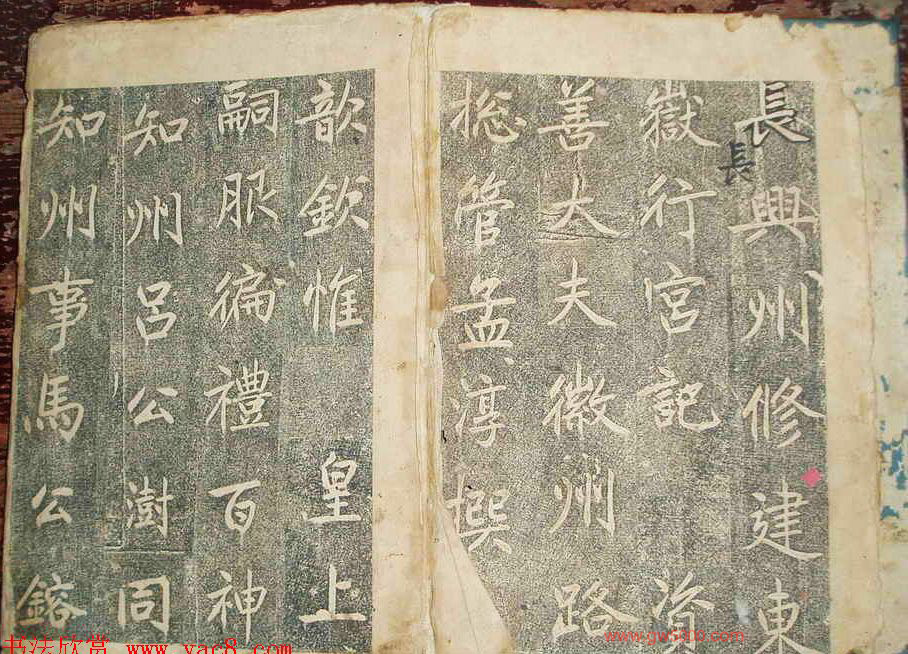 長興州修建東
長
嶽行宮記 資
善大夫徽州路
捴管孟淳撰
歆欽惟 皇上
嗣服徧禮百神
知州呂公澍同
知州事馬公鎔
书法欣赏 www.yac8.com
www.gw5000.com